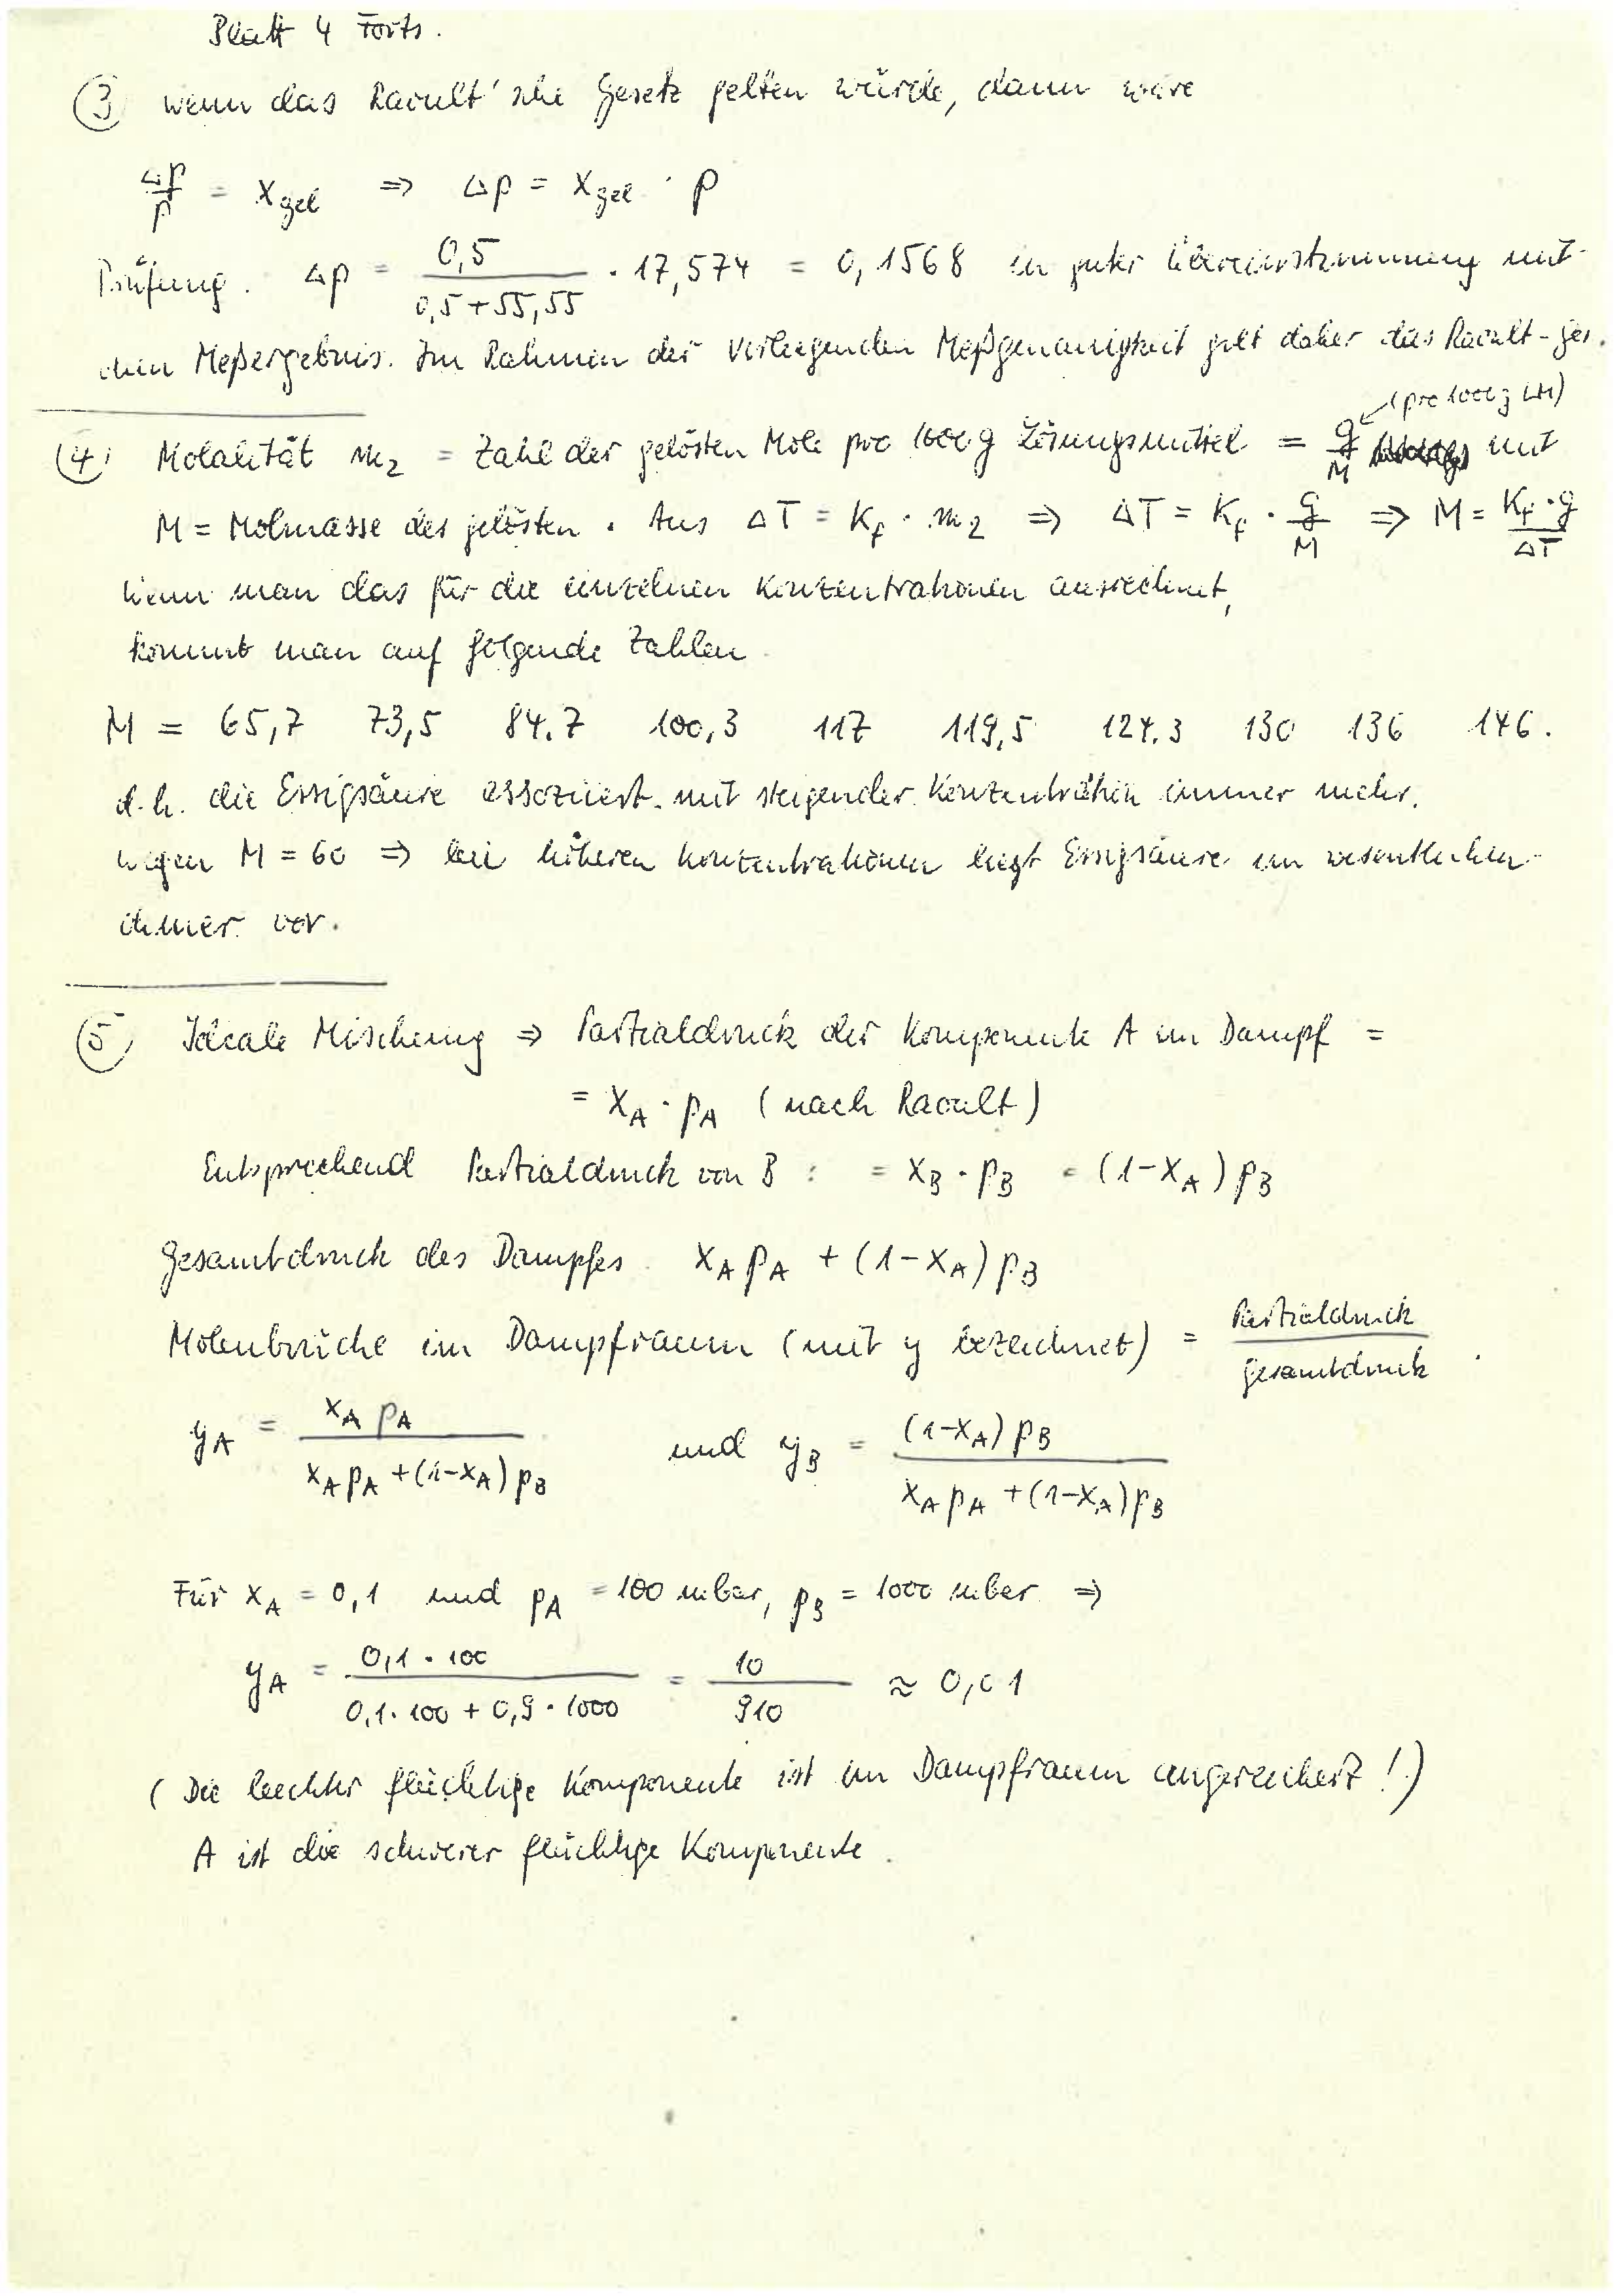 Blatt 4 Forts.
③ wenn das Raoult'sche Gesetz gelten würde, dann wäre
Δp/p = x_gel ⇒ Δp = x_gel · p
Prüfung. Δp = 0,5/(0,5+55,55) · 17,574 = 0,1568 in guter Übereinstimmung mit
dem Meßergebnis. Im Rahmen der vorliegenden Meßgenauigkeit gilt daher das Raoult-Ges.
(pro 1000 g LM)
④ Molalität m₂ = Zahl der gelösten Mole pro 1000 g Lösungsmittel = g/M mit
M = Molmasse des gelösten. Aus ΔT = K_f · m₂ ⇒ ΔT = K_f · g/M ⇒ M = K_f · g/ΔT
Wenn man das für die einzelnen Konzentrationen ausrechnet,
kommt man auf folgende Zahlen
M = 65,7 73,5 84.7 100,3 117 119,5 124.3 130 136 146.
d.h. die Essigsäure assoziiert mit steigender Konzentration immer mehr.
wegen M = 60 ⇒ bei höheren Konzentrationen liegt Essigsäure im wesentlichen
dimer vor.
⑤ Ideale Mischung ⇒ Partialdruck der Komponente A im Dampf =
= x_A · p_A (nach Raoult)
Entsprechend Partialdruck von B : = x_B · p_B = (1-x_A) p_B
Gesamtdruck des Dampfes x_A p_A + (1-x_A) p_B
Molenbrüche im Dampfraum (mit y bezeichnet) = Partialdruck/Gesamtdruck
y_A = x_A p_A/(x_A p_A + (1-x_A) p_B) und y_B = (1-x_A) p_B/(x_A p_A + (1-x_A) p_B)
Für x_A = 0,1 und p_A = 100 mbar, p_B = 1000 mbar ⇒
y_A = 0,1 · 100/(0,1 · 100 + 0,9 · 1000) = 10/910 ≈ 0,01
(Die leichter flüchtige Komponente ist im Dampfraum angereichert!)
A ist die schwerer flüchtige Komponente.